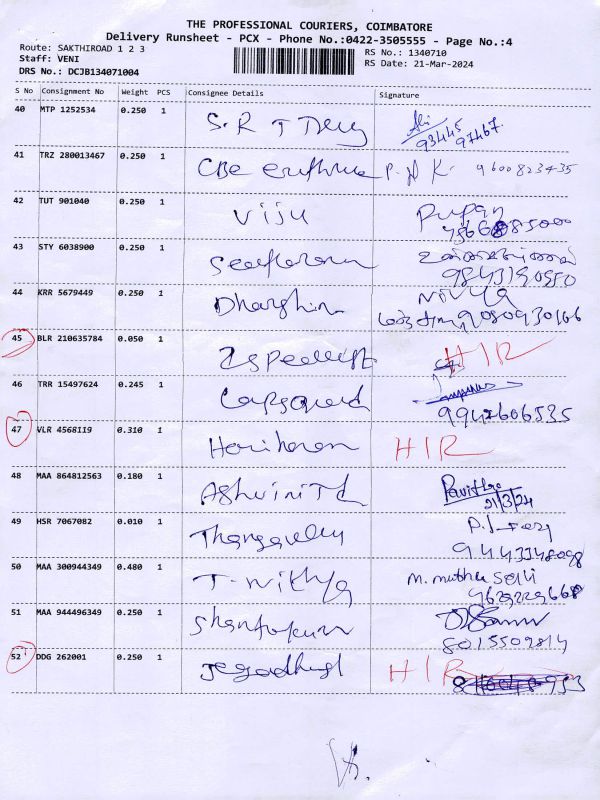 THE PROFESSIONAL COURIERS, COIMBATORE
Delivery Runsheet - PCX - Phone No.:0422-3505555 - Page No.:4
Route: SAKTHIROAD 1 2 3 RS No.: 1340710
Staff: VENI RS Date: 21-Mar-2024
DRS No.: DCJB134071004
S No Consignment No Weight PCS Consignee Details Signature
40 MTP 1252534 0.250 1 S.R
93445
97467
41 TRZ 280013467 0.250 1 CBE P. K. 9600823435
42 TUT 901040 0.250 1 Viju
43 STY 6038900 0.250 1
9843190550
44 KRR 5679449 0.250 1 Dharshin Nivya
9080930166
45 BLR 210635784 0.050 1 HIR
46 TRR 15497624 0.245 1
9942606535
47 VLR 4568119 0.310 1 Hariharan HIR
48 MAA 864812563 0.180 1 Ashvini Td Pavithra
21/3/24
49 HSR 7067082 0.010 1 Thangavelu
9443348098
50 MAA 300944349 0.480 1 T. Nithya M. muthu selvi
9629229668
51 MAA 944496349 0.250 1
8015509814
52 DDG 262001 0.250 1 HIR
953